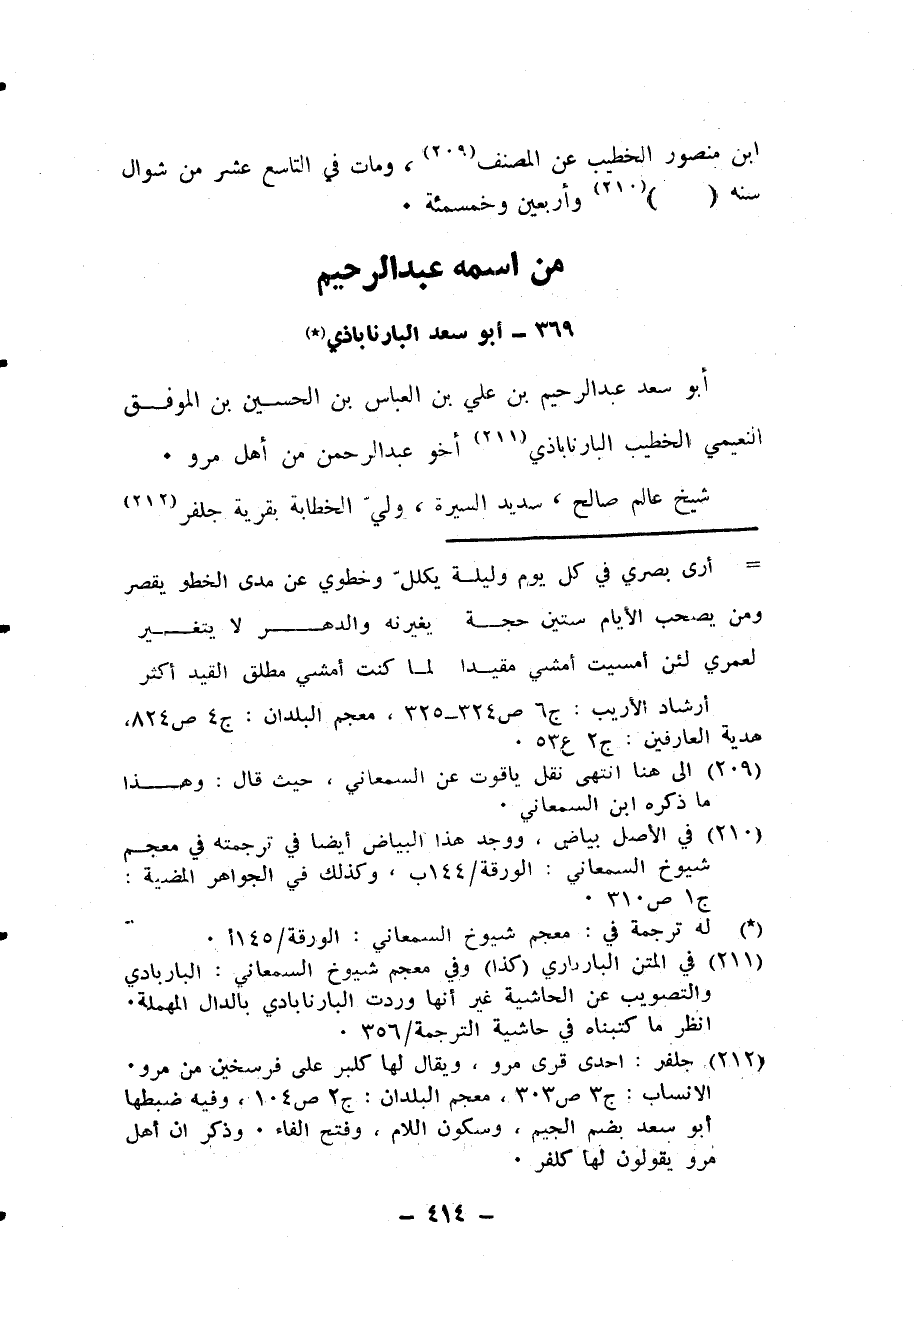 ابن منصور الخطيب عن المصنف(٢٠٩) ، ومات في التاسع عشر من شوال
سنه (     )(٢١٠) وأربعين وخمسمئة ٠
من اسمه عبدالرحيم
٣٦٩ ــ أبو سعد البارناباذي(*)
أبو سعد عبدالرحيم بن علي بن العباس بن الحسين بن الموفق
النعيمي الخطيب البارناباذي(٢١١) أخو عبدالرحمن من أهل مرو ٠
شيخ عالم صالح ، سديد السيرة ، وليّ الخطابة بقرية جلفر(٢١٢)
= أرى بصري في كل يوم وليلة يكللّ وخطوي عن مدى الخطو يقصر
ومن يصحب الأيام ستين حجة يغيرنه والدهر لا يتغير
لعمري لئن أمسيت أمشي مقيدا لما كنت أمشي مطلق القيد أكثر
أرشاد الأريب : ج٦ ص٣٢٤ــ٣٢٥ ، معجم البلدان : ج٤ ص٨٢٤،
هدية العارفين : ج٢ ع٥٣ ٠
(٢٠٩) الى هنا انتهى نقل ياقوت عن السمعاني ، حيث قال : وهذا
ما ذكره ابن السمعاني ٠
(٢١٠) في الأصل بياض ، ووجد هذا البياض أيضا في ترجمته في معجم
شيوخ السمعاني : الورقة/١٤٤ب ، وكذلك في الجواهر المضية :
ج١ ص٣١٠ ٠
(*) له ترجمة في : معجم شيوخ السمعاني : الورقة/١٤٥أ ٠
(٢١١) في المتن (كذا) وفي معجم شيوخ السمعاني : الباربادي
والتصويب عن الحاشية غير أنها وردت البارنابادي بالدال المهملة٠
انظر ما كتبناه في حاشية الترجمة/٣٥٦ ٠
(٢١٢) جلفر : احدى قرى مرو ، ويقال لها كلبر على فرسخين من مرو٠
الانساب : ج٣ ص٣٠٣ ، معجم البلدان : ج٢ ص١٠٤ ، وفيه ضبطها
أبو سعد بضم الجيم ، وسكون اللام ، وفتح الفاء ٠ وذكر ان أهل
مرو يقولون لها كلفر ٠
ــ ٤١٤ ــ